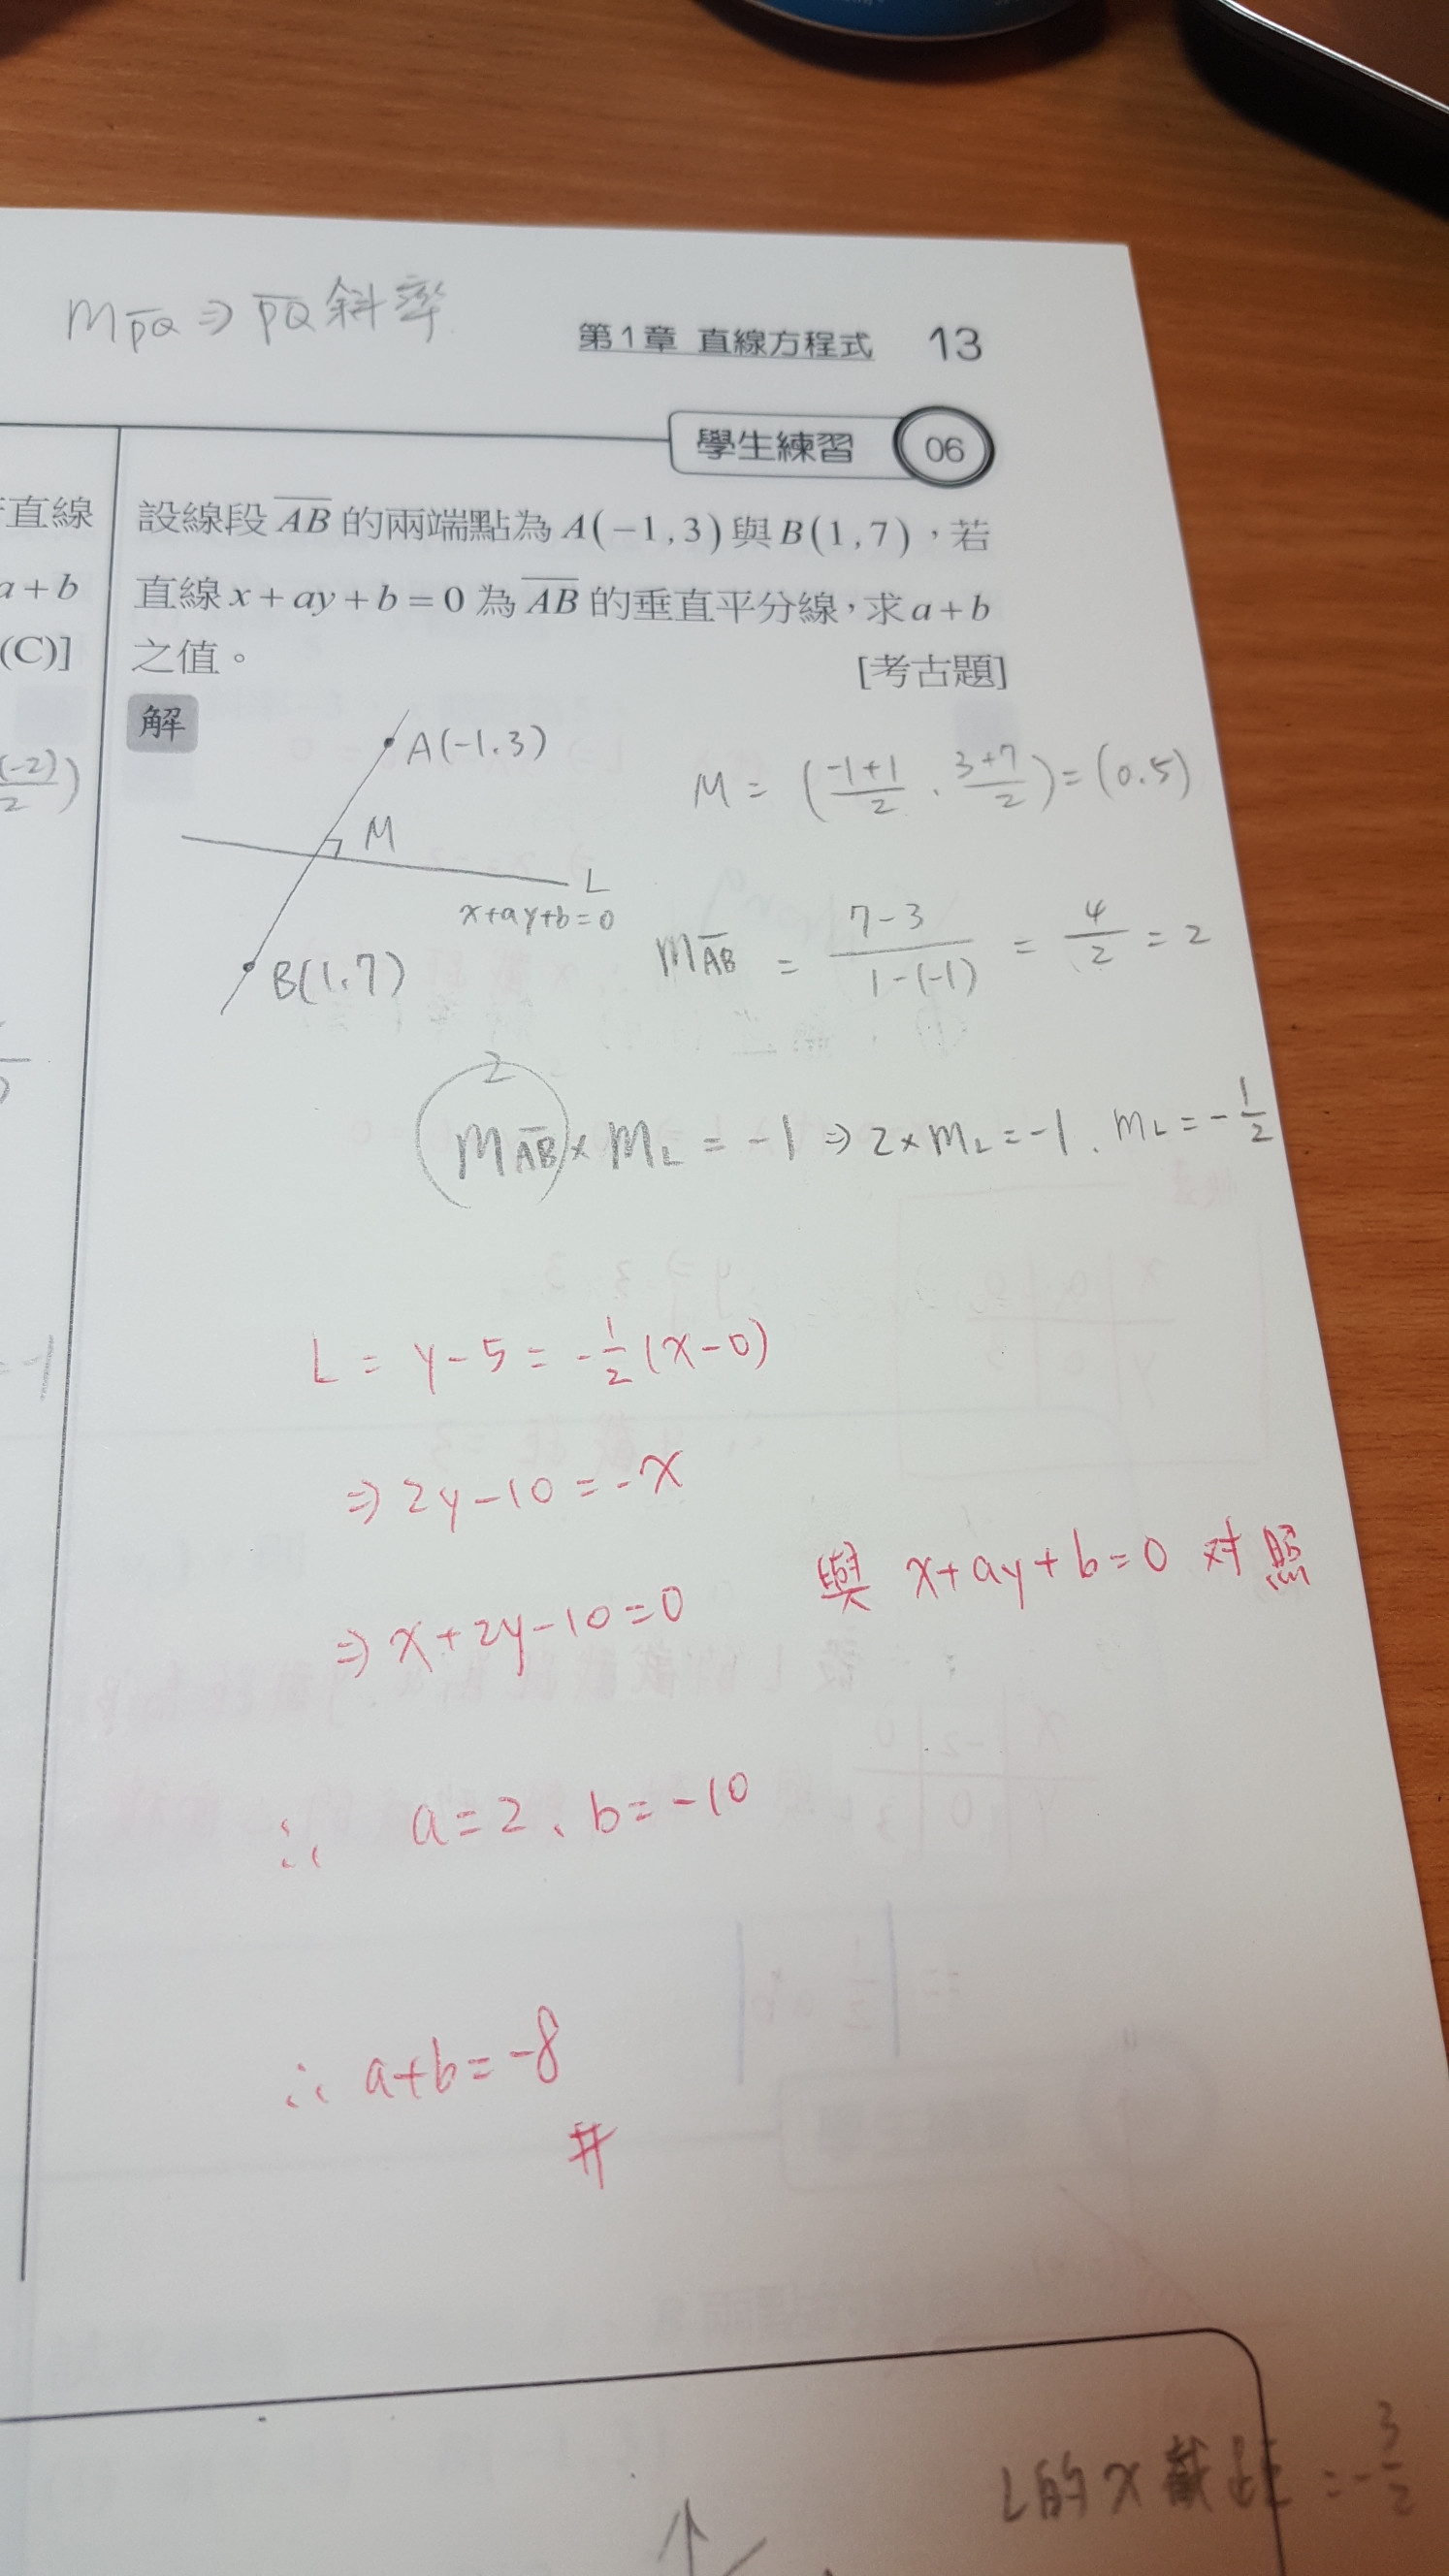 m_{\overline{PQ}} ⇒ \overline{PQ} 斜率
第1章 直線方程式 13
學生練習 06
直線
a+b
(C)]
設線段 \overline{AB} 的兩端點為 A(-1,3) 與 B(1,7),若
直線 x+ay+b=0 為 \overline{AB} 的垂直平分線,求 a+b
之值。 [考古題]
解
A(-1.3)
M
L
x+ay+b=0
B(1.7)
M = (\frac{-1+1}{2} . \frac{3+7}{2}) = (0.5)
m_{\overline{AB}} = \frac{7-3}{1-(-1)} = \frac{4}{2} = 2
2
m_{\overline{AB}} × m_L = -1 ⇒ 2×m_L = -1 . m_L = -\frac{1}{2}
L = y-5 = -\frac{1}{2}(x-0)
⇒ 2y-10 = -x
⇒ x+2y-10=0 與 x+ay+b=0 対照
∴ a=2、b=-10
∴ a+b=-8
#
L的x截距 = -\frac{3}{2}